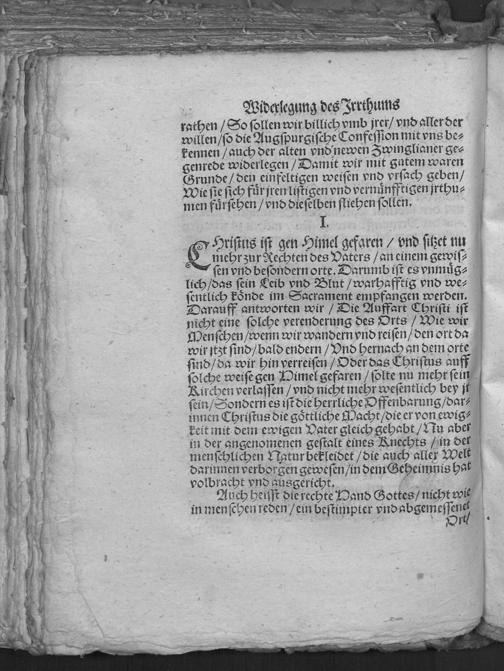 Widerlegung des Irrthums
rathen / So sollen wir billich vmb jrer / vnd aller der
willen / so die Augspurgische Confession mit vns be-
kennen / auch der alten vnd newen Zwinglianer ge-
genrede widerlegen / Damit wir mit gutem waren
Grunde / den einfeltigen weisen vnd vrsach geben /
Wie sie sich für jren listigen vnd vernünfftigen jrthu-
men fürsehen / vnd dieselben fliehen sollen.
I.
CHristus ist gen Himel gefaren / vnd sitzet nu
mehr zur Rechten des Vaters / an einem gewis-
sen vnd besondern orte. Darumb ist es vnmüg-
lich / das sein Leib vnd Blut / warhafftig vnd we-
sentlich könde im Sacrament empfangen werden.
Darauff antworten wir / Die Auffart Christi ist
nicht eine solche verenderung des Orts / Wie wir
Menschen / wenn wir wandern vnd reisen / den ort da
wir jtzt sind / bald endern / Vnd hernach an dem orte
sind / da wir hin verreisen / Oder das Christus auff
solche weise gen Himel gefaren / solte nu mehr sein
Kirchen verlassen / vnd nicht mehr wesentlich bey jr
sein / Sondern es ist die herrliche Offenbarung / dar-
innen Christus die göttliche Macht / die er von ewig-
keit mit dem ewigen Vater gleich gehabt / Nu aber
in der angenomenen gestalt eines Knechts / in der
menschlichen Natur bekleidet / die auch aller Welt
darinnen verborgen gewesen / in dem Geheimnis hat
volbracht vnd ausgericht.
Auch heisst die rechte Hand Gottes / nicht wie
in menschen reden / ein bestimpter vnd abgemessener
Ort /